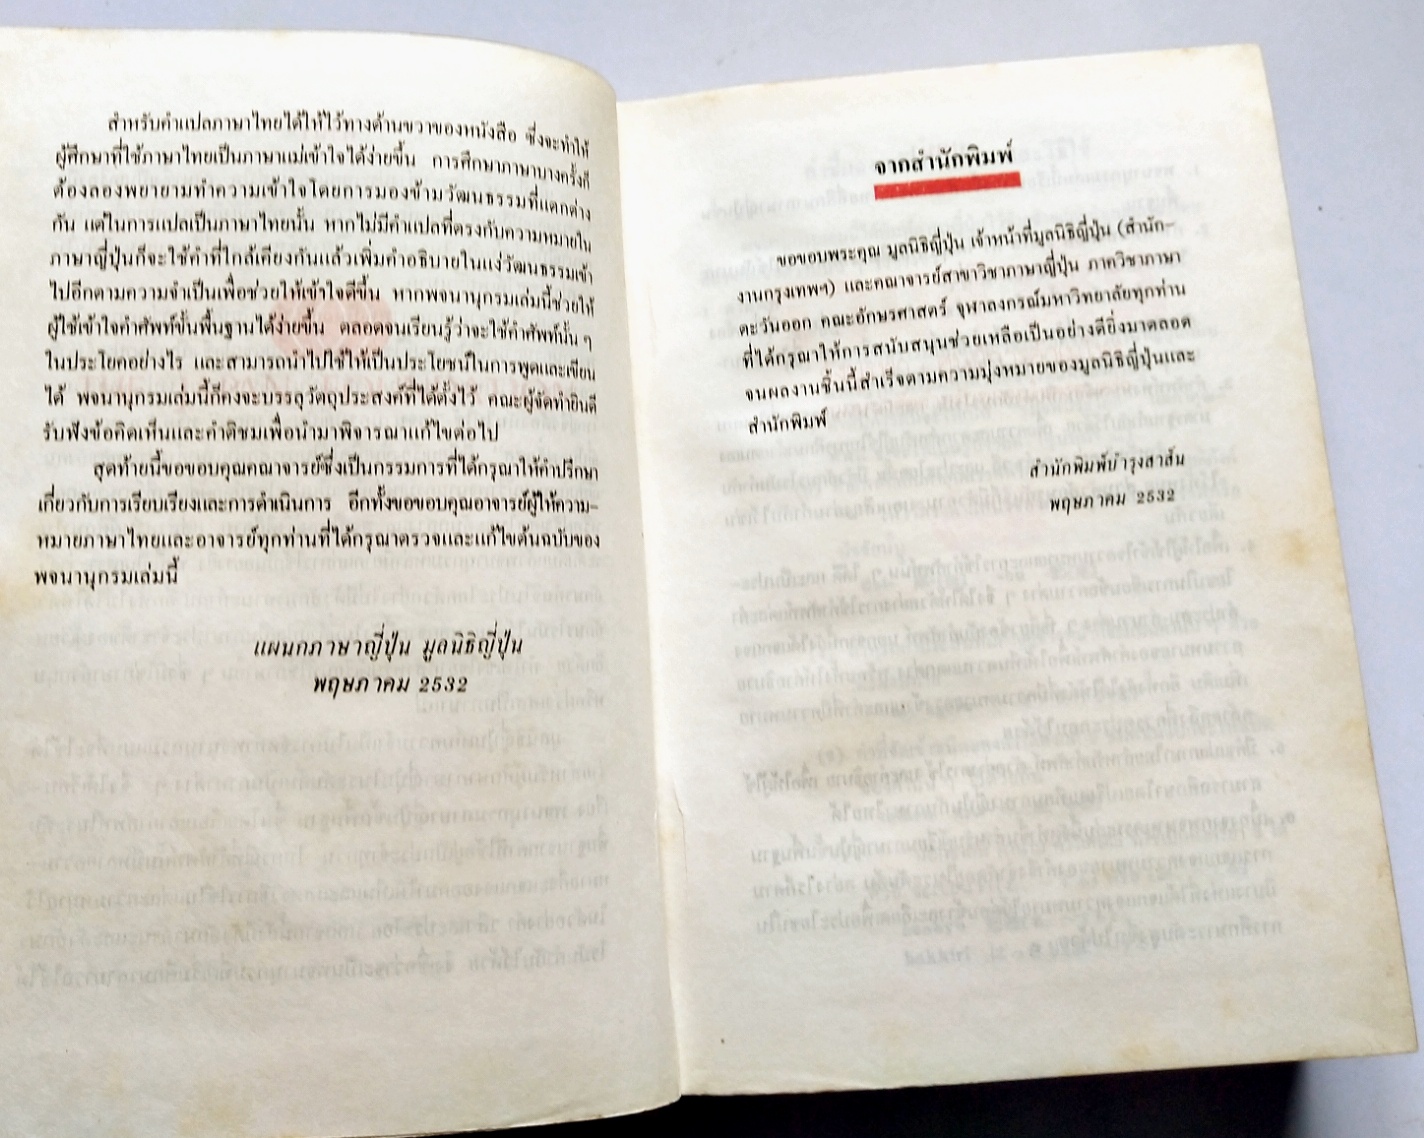 สำหรับคำแปลภาษาไทยได้ให้ไว้ทางด้านขวาของหนังสือ ซึ่งจะทำให้
ผู้ศึกษาที่ใช้ภาษาไทยเป็นภาษาแม่เข้าใจได้ง่ายขึ้น การศึกษาภาษาบางครั้งก็
ต้องลองพยายามทำความเข้าใจโดยการมองข้ามวัฒนธรรมที่แตกต่าง
กัน แต่ในการแปลเป็นภาษาไทยนั้น หากไม่มีคำแปลที่ตรงกับความหมายใน
ภาษาญี่ปุ่นก็จะใช้คำที่ใกล้เคียงกันแล้วเพิ่มคำอธิบายในแง่วัฒนธรรมเข้า
ไปอีกตามความจำเป็นเพื่อช่วยให้เข้าใจดีขึ้น หากพจนานุกรมเล่มนี้ช่วยให้
ผู้ใช้เข้าใจคำศัพท์ขั้นพื้นฐานได้ง่ายขึ้น ตลอดจนเรียนรู้ว่าจะใช้คำศัพท์นั้น ๆ
ในประโยคอย่างไร และสามารถนำไปใช้ให้เป็นประโยชน์ในการพูดและเขียน
ได้ พจนานุกรมเล่มนี้ก็คงจะบรรลุวัตถุประสงค์ที่ได้ตั้งไว้ คณะผู้จัดทำยินดี
รับฟังข้อคิดเห็นและคำติชมเพื่อนำมาพิจารณาแก้ไขต่อไป
สุดท้ายนี้ขอขอบคุณคณาจารย์ซึ่งเป็นกรรมการที่ได้กรุณาให้คำปรึกษา
เกี่ยวกับการเรียบเรียงและการดำเนินการ อีกทั้งขอขอบคุณอาจารย์ผู้ให้ความ-
หมายภาษาไทยและอาจารย์ทุกท่านที่ได้กรุณาตรวจและแก้ไขต้นฉบับของ
พจนานุกรมเล่มนี้
แผนกภาษาญี่ปุ่น มูลนิธิญี่ปุ่น
พฤษภาคม 2532
จากสำนักพิมพ์
ขอขอบพระคุณ มูลนิธิญี่ปุ่น เจ้าหน้าที่มูลนิธิญี่ปุ่น (สำนัก-
งานกรุงเทพฯ) และคณาจารย์สาขาวิชาภาษาญี่ปุ่น ภาควิชาภาษา
ตะวันออก คณะอักษรศาสตร์ จุฬาลงกรณ์มหาวิทยาลัยทุกท่าน
ที่ได้กรุณาให้การสนับสนุนช่วยเหลือเป็นอย่างดียิ่งมาตลอด
จนผลงานชิ้นนี้สำเร็จตามความมุ่งหมายของมูลนิธิญี่ปุ่นและ
สำนักพิมพ์
สำนักพิมพ์บำรุงสาส์น
พฤษภาคม 2532